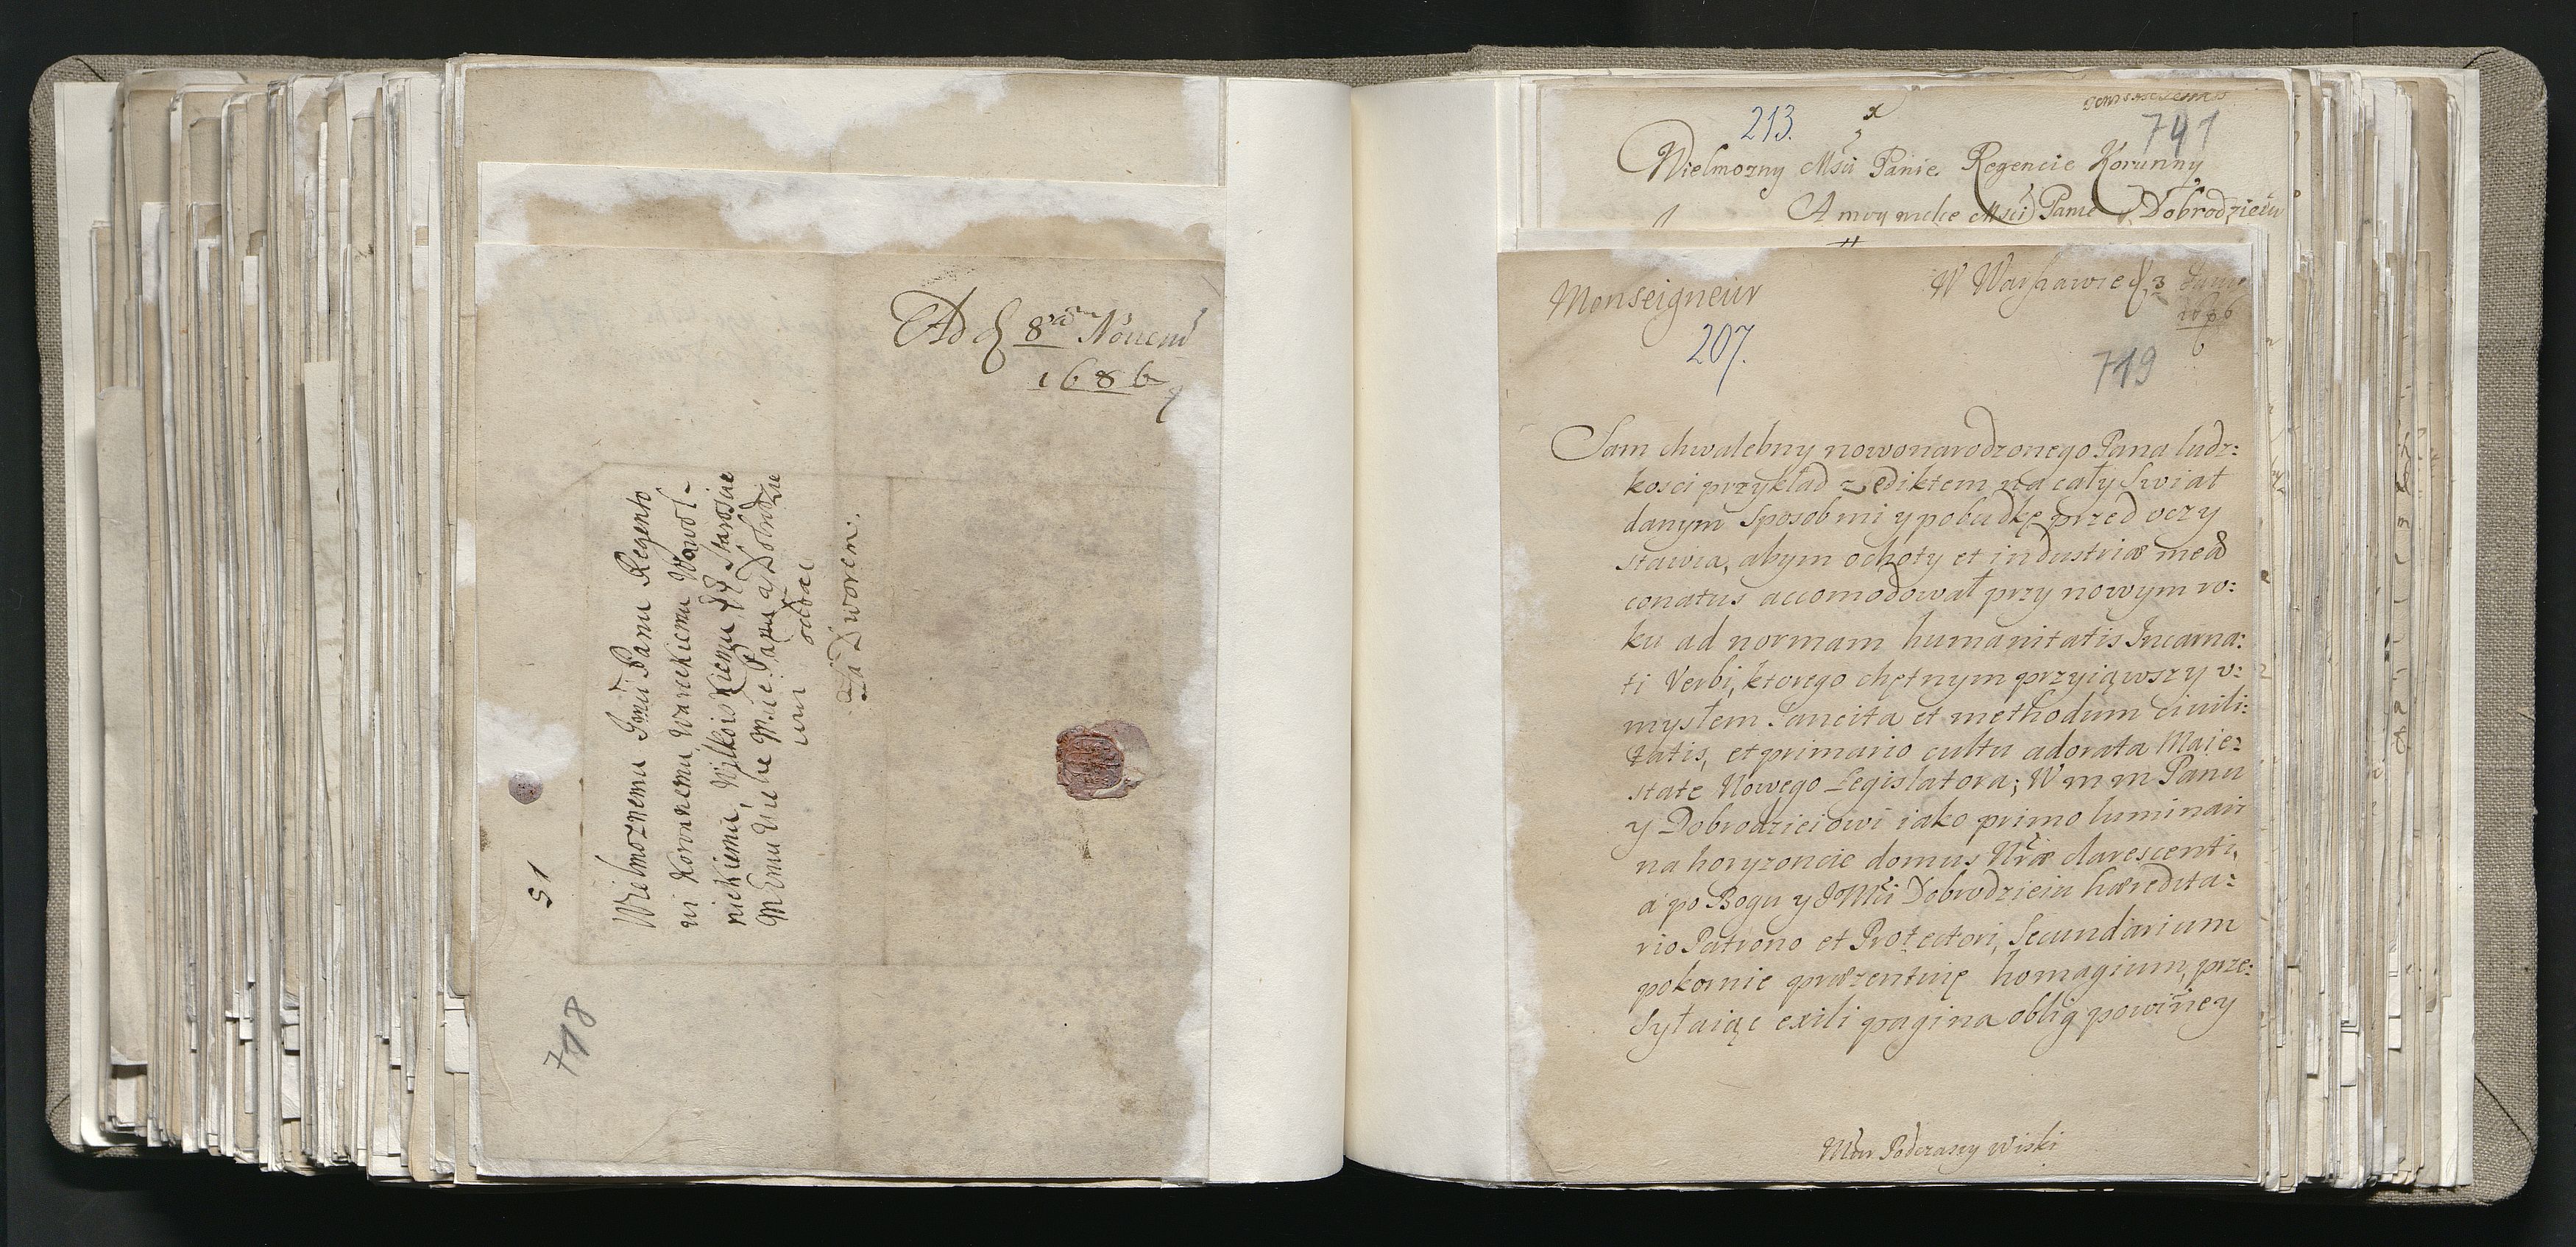 Ad d 8va Nouem
1686
Wielmoznemu Imći Panu Regento
wi Koronnemu, Wareckiemu, Wąwol-
nickiemu, Wilkoiskiemu Staroscie
Memu Wielce Mśćie Panu a Dobrodzie
iowi oddać
Za Dworem.
51
718
213.
741
Wielmozny Msci Panie Regencie Korunny
A moy wielce Msci Panie Dobrodzieiu
Monseigneur
W Warszawie d 3 Janu
1686
207.
719
Sam chwalebny nowonarodzonego Pana ludz:
kosci przykład z Ediktem na cały Swiat
danym Sposob mi y pobudkę przed oczy
stawia, abym ochoty et industriæ meæ
conatus accomodował przy nowym ro:
ku ad normam humanitatis Incarna:
ti Verbi, ktorego chętnym przyiąwszy v:
mysłem Sancita et methodum civili:
tatis, et primario cultu adorata Maie:
state Nowego Legislatora; W m m Panu
y Dobrodzieiowi iako primo luminari
na horyzoncie domus Nræ clarescenti,
a po Bogu y JoMći Dobrodzieiu hæredita:
rio Patrono et Protectori, Secundarium
pokornie præzentuię homagium, prze:
Syłaiąc exili pagina oblig powinney
Podczaszy Wiski